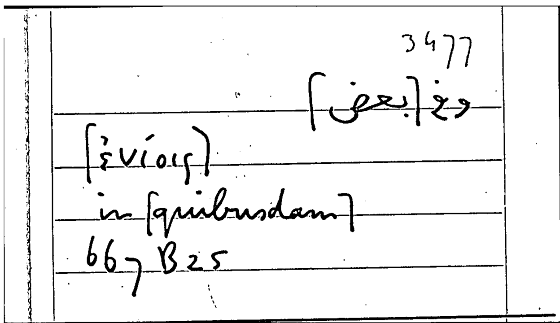 3477
وفى [بعض]
[ἐνίοις]
in [quibusdam]
667 B25